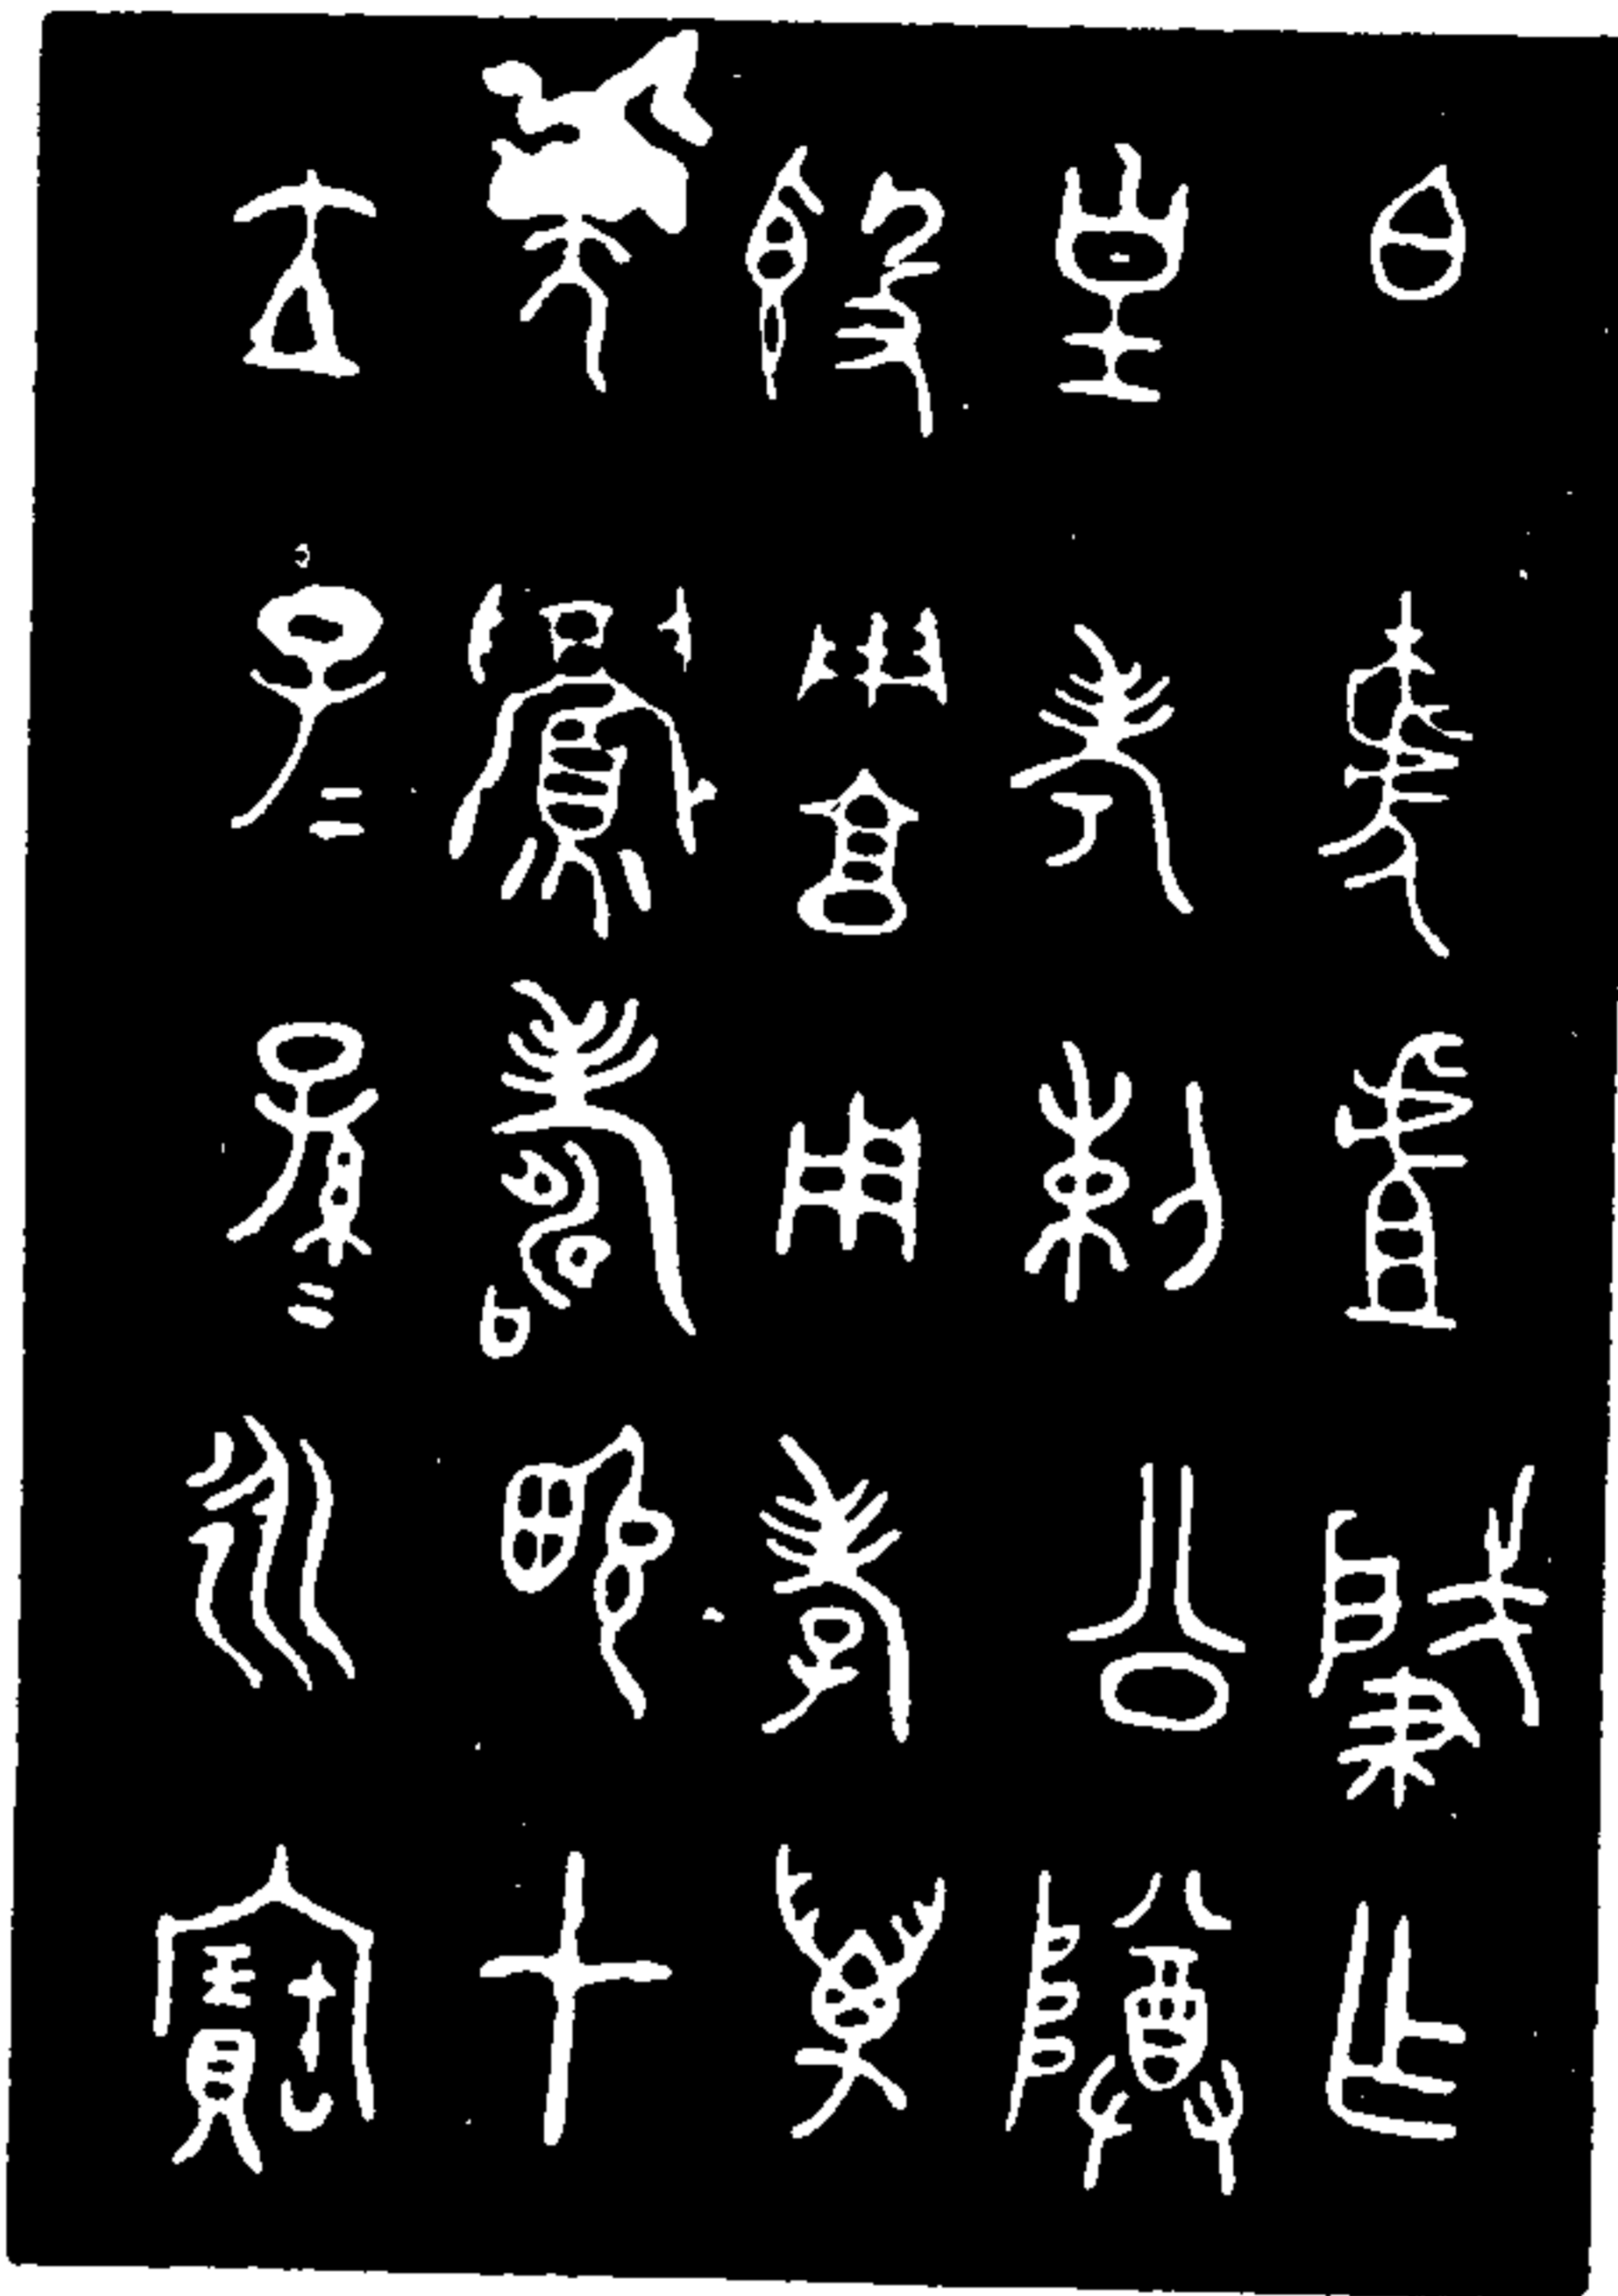 白肇乍
皇考剌公尊
𣪘用享用孝萬
年眉壽畯才
立子＝孫＝永寶